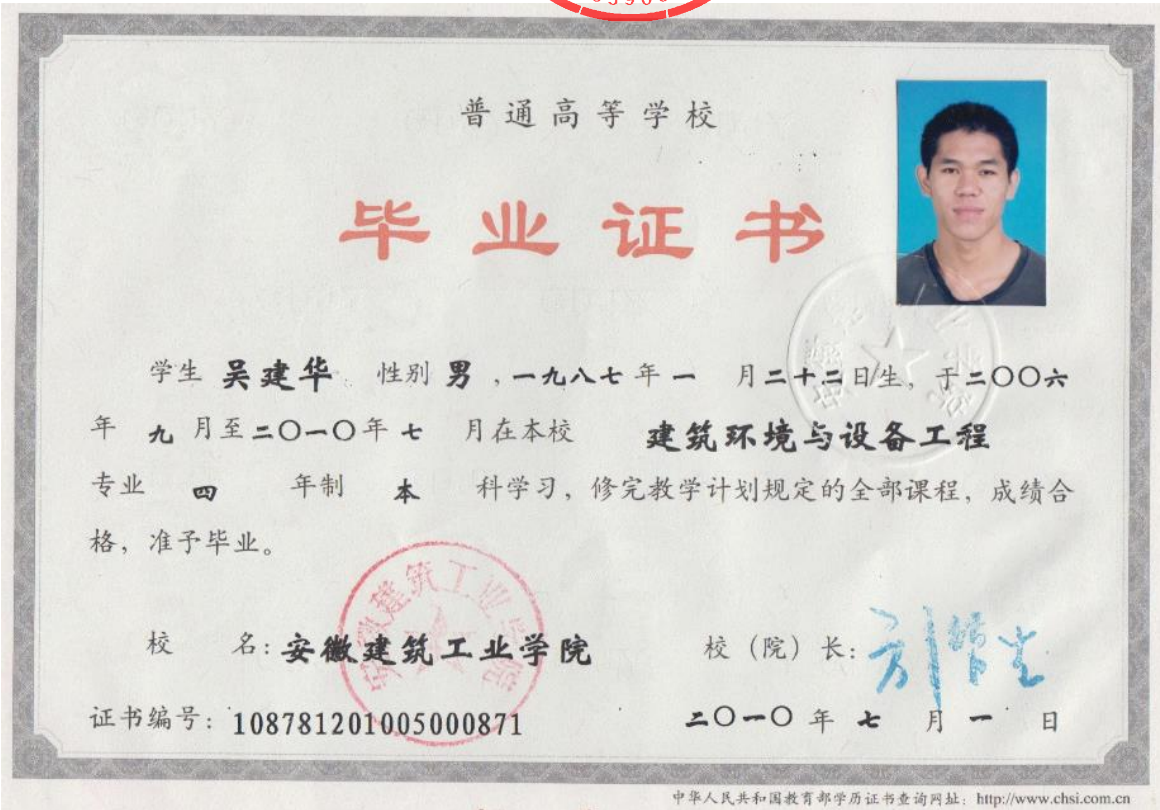 普通高等学校
毕业证书
学生 吴建华 性别 男，一九八七年一 月二十二日生，于二〇〇六
年 九 月至二〇一〇年七 月在本校 建筑环境与设备工程
专业 四 年制 本 科学习，修完教学计划规定的全部课程，成绩合
格，准予毕业。
安徽建筑工业学院
校 名：安徽建筑工业学院 校（院）长：
证书编号：108781201005000871 二〇一〇年七月一日
中华人民共和国教育部学历证书查询网址：http://www.chsi.com.cn